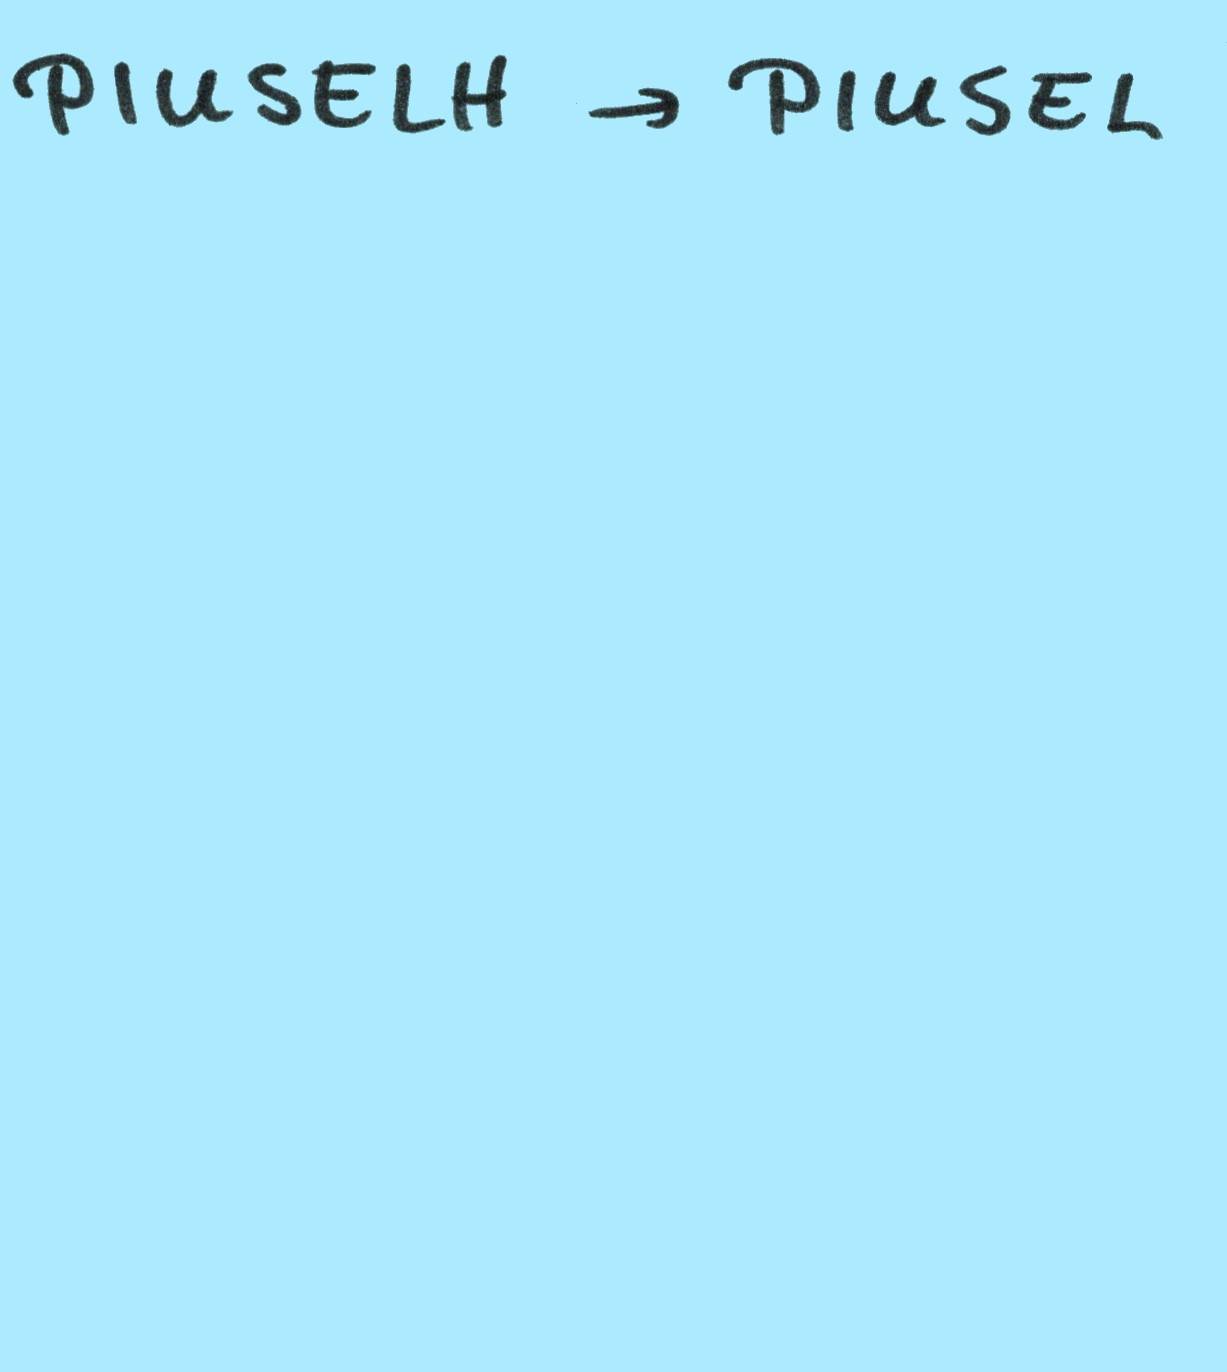 PIUSELH → PIUSEL